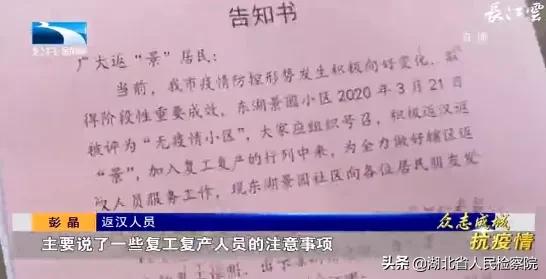 长江云
直播
告知书
广大返“景”居民：
当前，我市疫情防控形势发生积极向好变化，取
得阶段性重要成效，东湖景园小区2020年3月21日
被评为“无疫情小区”，大家应组织号召，积极返汉返
“景”，加入复工复产的行列中来，为全力做好辖区返
汉人员服务工作，现东湖景园社区向各位居民朋友发
彭晶 返汉人员
众志成城
抗疫情
主要说了一些复工复产人员的注意事项
头条@湖北省人民检察院